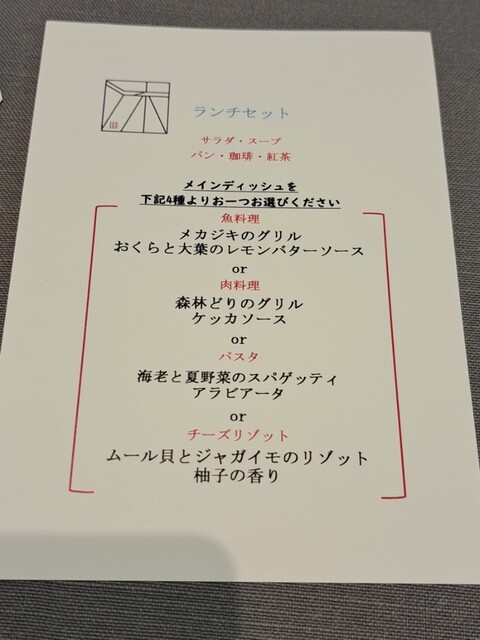 ランチセット
サラダ・スープ
パン・珈琲・紅茶
メインディッシュを
下記4種よりお一つお選びください
魚料理
メカジキのグリル
おくらと大葉のレモンバターソース
or
肉料理
森林どりのグリル
ケッカソース
or
パスタ
海老と夏野菜のスパゲッティ
アラビアータ
or
チーズリゾット
ムール貝とジャガイモのリゾット
柚子の香り